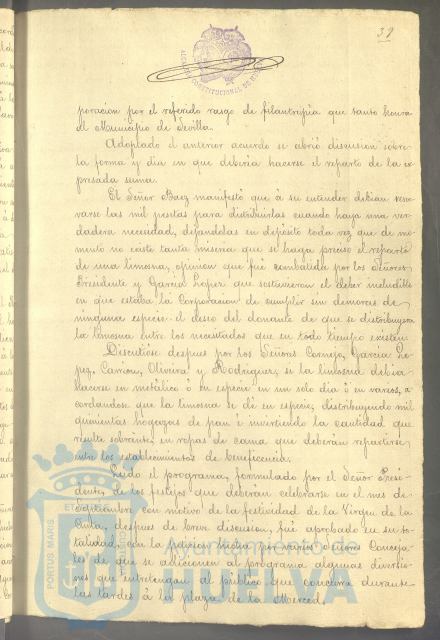 32
ALCALDIA CONSTITUCIONAL DE HUELVA
poracion por el referido rasgo de filantropia que tanto honra
al Municipio de Sevilla.
Adoptado el anterior acuerdo se abrió discusion sobre
la forma y dia en que deberia hacerse el reparto de la ex
presada suma.
El Señor Baez manifestó que á su entender debian reser
varse las mil pesetas para distribuirlas cuando haya una ver
dadera necesidad, dejándolas en depósito toda vez que de mo
mento no existe tanta miseria que se haga preciso el reparto
de una limosna, opinion que fué combatida por los Señores
Presidente y Garcia Lopez que sostuvieron el deber ineludible
en que estaba la Corporacion de cumplir sin demoras de
ninguna especie el deseo del donante de que se distribuyera
la limosna entre los necesitados que en todo tiempo existen.
Discutióse despues por los Señores Cornejo, Garcia Lo
pez, Carrion, Oliveira y Rodriguez, si la limosna debia
hacerse en metálico ó en especie en un solo dia ó en varios, a
cordandose que la limosna se dé en especie, distribuyendo mil
quinientas hogazas de pan é invirtiendo la cantidad que
resulte sobrante en ropas de cama que deberán repartirse
entre los establecimientos de beneficencia.
Leido el programa, formulado por el Señor Presi
dente, de los festejos que deberan celebrarse en el mes de
Septiembre con motivo de la festividad de la Virgen de la
Cinta, despues de breve discusion, fué aprobado en su to
talidad, con la adicion hecha por varios Señores Conceja
les de que se adicionen al programa algunas diversio
nes que entretengan al público que concurra durante
las tardes á la plaza de la Merced.
PORTUS MARIS ET
Ayuntamiento de
HUELVA